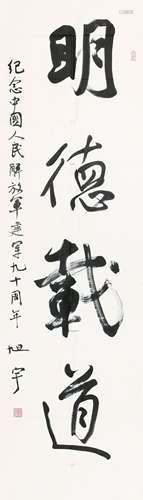 明德載道
纪念中國人民解放軍建军九十周年
旭宇